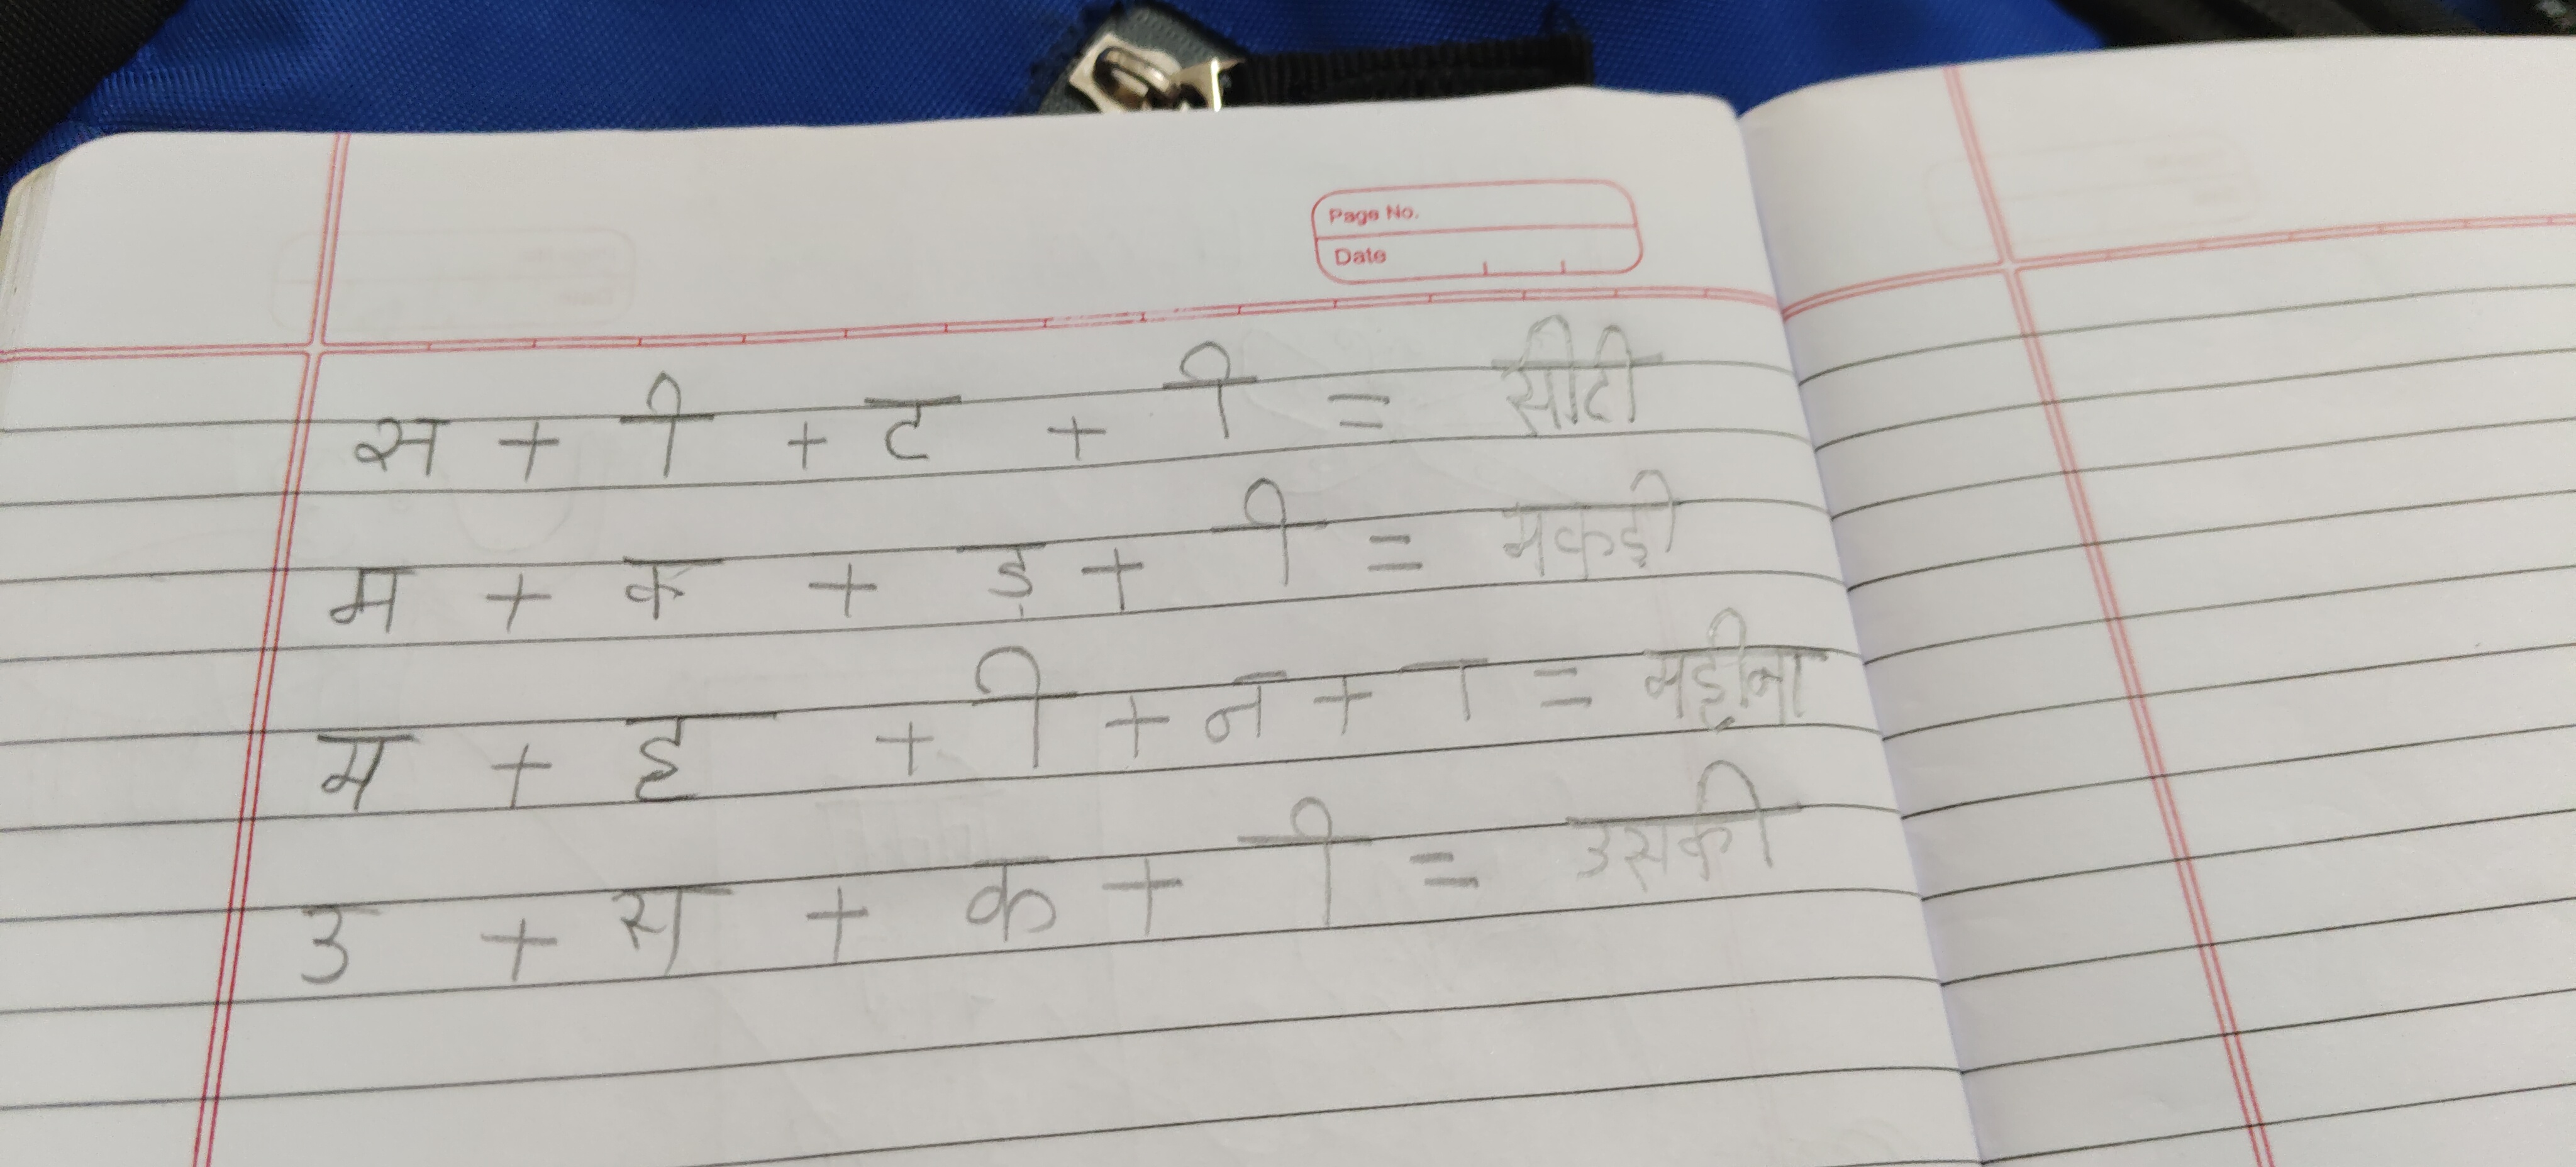 Page No.
Date
स + ी + ट + ी = सीटी
म + क + ड़ + ी = मकड़ी
म + ह + ी + न + ा = महीना
उ + स + क + ी = उसकी